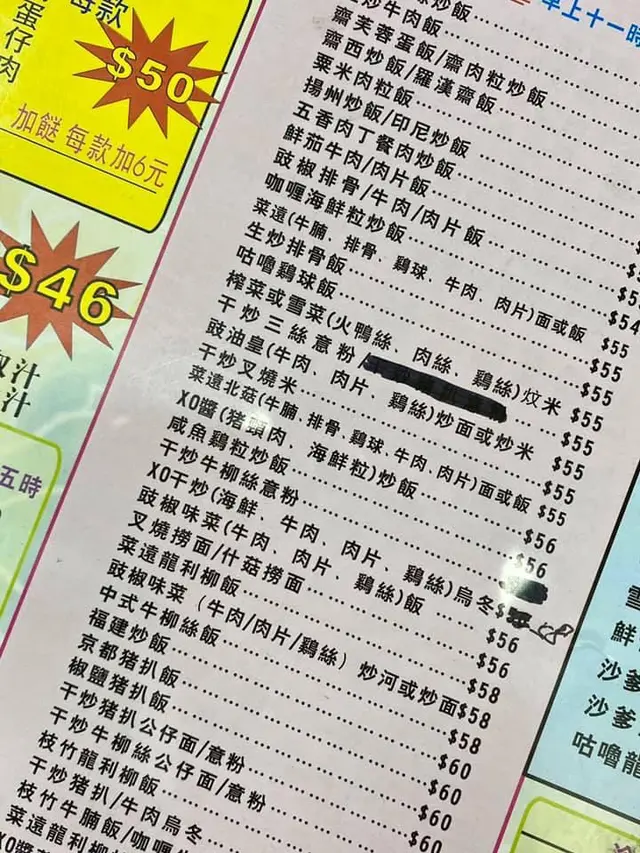 每款
蛋仔
肉
$50
加餸 每款加6元
$46
汁
汁
五時
早上十一時
炒飯
炒牛肉飯
齋芙蓉蛋飯/齋肉粒炒飯
齋西炒飯/羅漢齋飯
粟米肉粒飯
揚州炒飯/印尼炒飯
五香肉丁餐肉炒飯
鮮茄牛肉/肉片飯
豉椒排骨/牛肉/肉片飯
咖喱海鮮粒炒飯 $54
菜遠(牛腩、排骨、鷄球、牛肉、肉片)面或飯 $55
生炒排骨飯 $55
咕嚕鷄球飯 $55
榨菜或雪菜(火鴨絲、肉絲、鷄絲)炆米 $55
干炒三絲意粉/ $55
豉油皇(牛肉、肉片、鷄絲)炒面或炒米 $55
干炒叉燒米 $55
菜遠北菇(牛腩、排骨、鷄球、牛肉、肉片)面或飯 $55
XO醬(猪頸肉、海鮮粒)炒飯 $56
咸魚鷄粒炒飯 $56
干炒牛柳絲意粉
XO干炒(海鮮、牛肉、肉片、鷄絲)烏冬$ 68
豉椒味菜(牛肉、肉片、鷄絲)飯 $56
叉燒撈面/什菇撈面 $56
菜遠龍利柳飯 $58
豉椒味菜(牛肉/肉片/鷄絲)炒河或炒面$58
中式牛柳絲飯 $58
福建炒飯 $60
京都猪扒飯 $60
椒鹽猪扒飯 $60
干炒猪扒公仔面/意粉 $60
干炒牛柳絲公仔面/意粉
枝竹龍利柳飯
干炒猪扒/牛肉烏冬
枝竹牛腩飯/咖喱
菜遠龍利柳
XO醬
雪
鮮
沙爹
沙爹
咕嚕龍